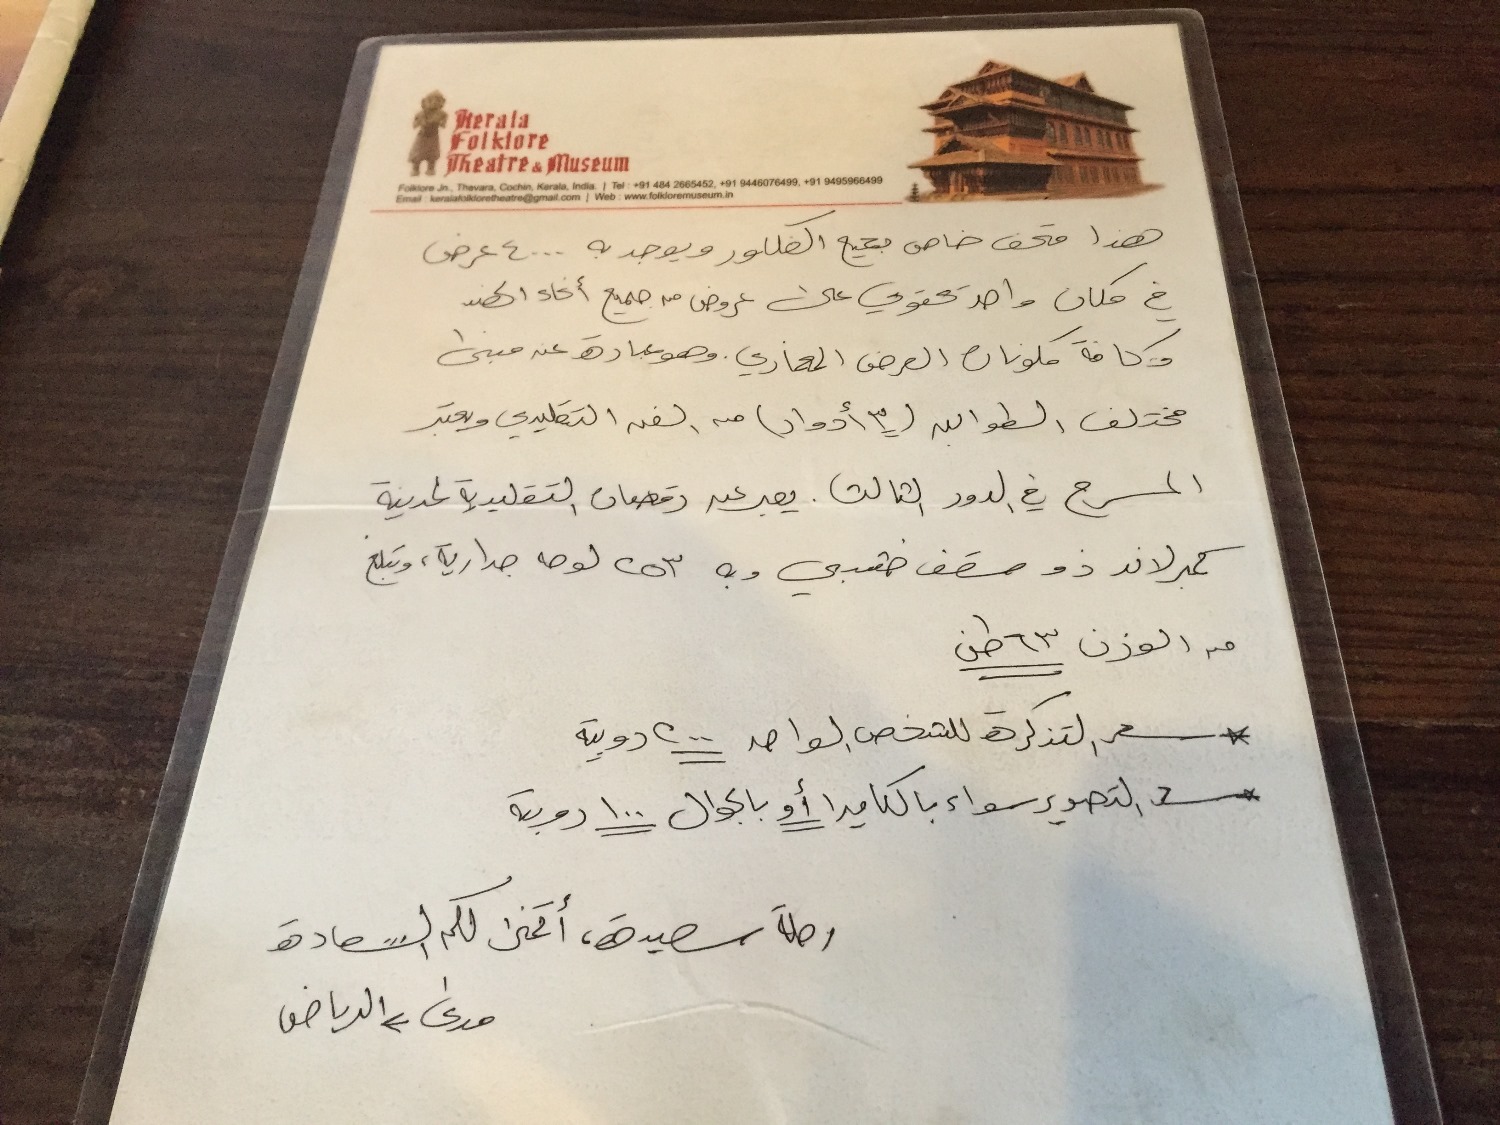 Kerala
Folklore
Theatre & Museum
Folklore Jn., Thevara, Cochin, Kerala, India. | Tel : +91 484 2665452, +91 9446076499, +91 9495966499
Email : keralafolkloretheatre@gmail.com | Web : www.folkloremuseum.in
هذا متحف خاص بجميع الفلكلور ويوجد به ٤٠٠٠ عرض
في مكان واحد تحتوي على عروض من جميع أنحاء الهند
وكافة مكونات العرض الحضاري. وهو عبارة عن مبنى
مختلف الطوابق (٣ أدوار) من الفن التقليدي ويعتبر
المسرح في الدور الثالث. يعبر عن رقصات التقليدية لمدينة
ذو سقف خشبي وبه ٢٥٣ لوحه جدارية، وتبلغ
من الوزن ٦٣ طن
* سعر التذكرة للشخص الواحد ٢٠٠ روبية
* التصوير سواء بالكاميرا أو بالجوال ١٠٠ روبية
رحلة سعيدة، أتمنى لكم السعادة
الرياض